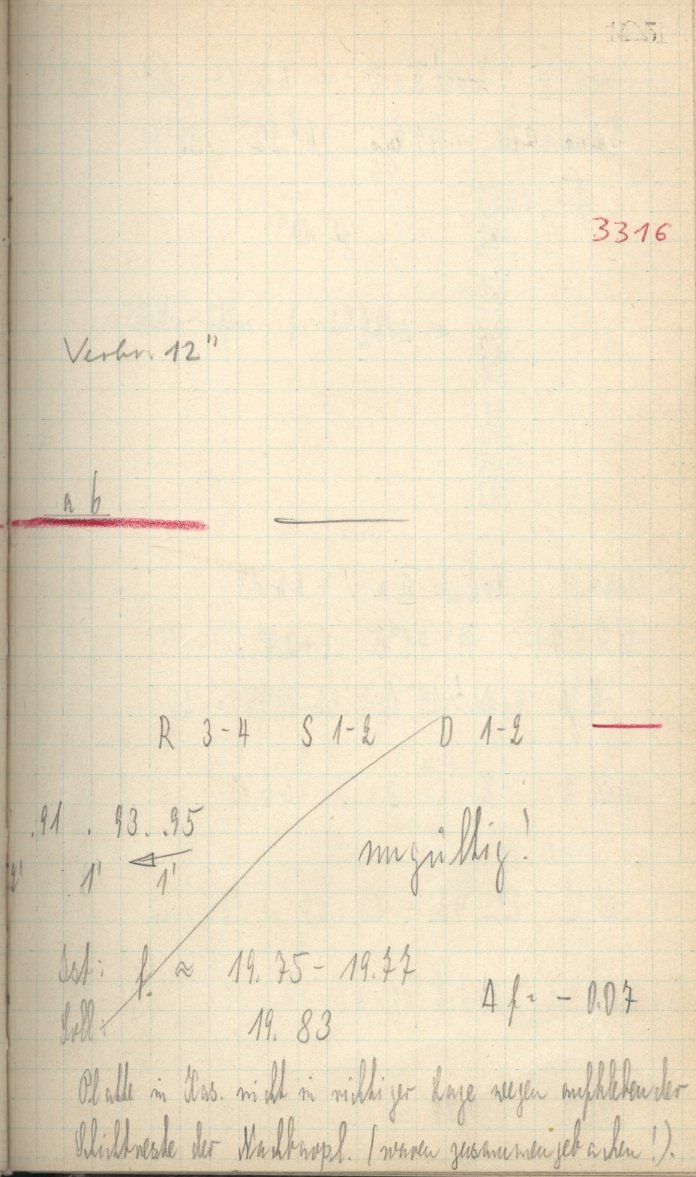 3316
12"
a b
R 3-4 S 1-2 D 1-2
.91 . 93. .95
1' 1'
ungültig!
Ist: f. ≈ 19.75 - 19.77
Δ f = - 0.07
Soll: 19.83
Platte in Kas. nicht in richtiger Lage wegen aufklebender
Schichtreste der Nachbarpl. (waren zusammengebacken!).